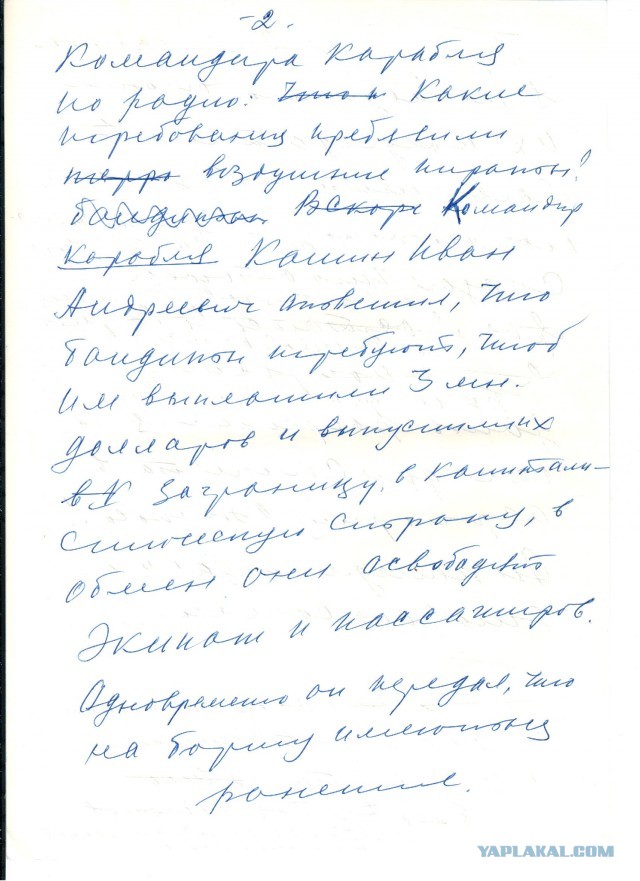 -2.
Командира Карабля
по радио: Что и Какие
требования предявили
терро воздушные пираты?
бандитам Вскоре Командир
Корабля Кашин Иван
Андреевич оповестил, что
бандиты требуют, чтоб
им выплатили 3 мн.
долларов и выпустили их
в заграницу, в капитали-
стическую страну, в
обмен они освободят
Экипаж и пассажиров.
Одновремено он передал, что
на борту имеются
раненые.
YAPLAKAL.COM